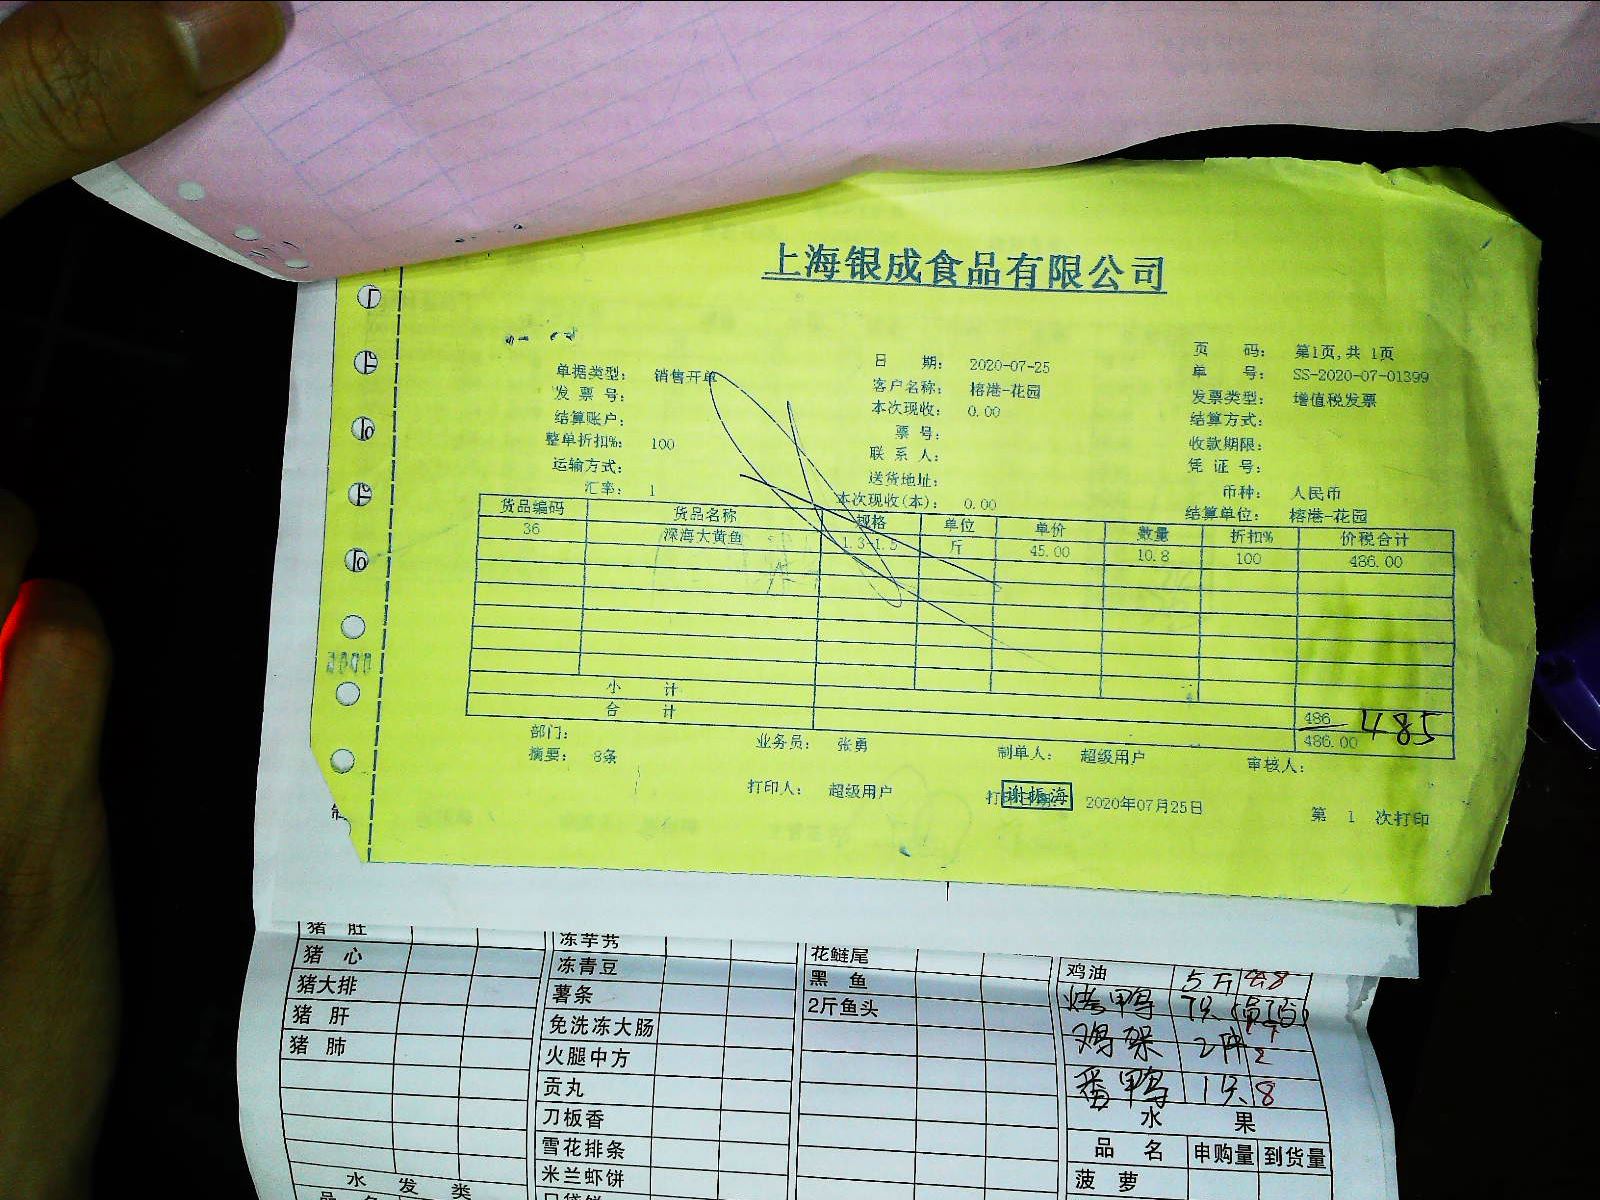 上海银成食品有限公司
单据类型： 销售开单 日 期： 2020-07-25 页 码： 第1页,共 1页
发 票 号： 客户名称： 榕港-花园 单 号： SS-2020-07-01399
结算账户： 本次现收： 0.00 发票类型： 增值税发票
整单折扣%： 100 票 号： 结算方式：
运输方式： 联 系 人： 收款期限：
汇率： 1 送货地址： 凭 证 号：
本次现收(本)： 0.00 币种： 人民币
结算单位： 榕港-花园
货品编码 货品名称 规格 单位 单价 数量 折扣% 价税合计
36 深海大黄鱼 1.3-1.5 斤 45.00 10.8 100 486.00
小 计 486
合 计 486.00 485
部门： 业务员： 张勇 制单人： 超级用户 审核人：
摘要： 8条
打印人： 超级用户 谢振海 2020年07月25日 第 1 次打印
猪 肚 冻芋艿 花鲢尾 鸡油 5斤
猪 心 冻青豆 黑 鱼 烤鸭 7只
猪大排 薯条 2斤鱼头 鸡架 2件 2
猪 肝 免洗冻大肠 番鸭 1只 8
猪 肺 火腿中方 水 果
贡丸 品 名 申购量 到货量
刀板香 菠 萝
雪花排条
米兰虾饼
水 发 类